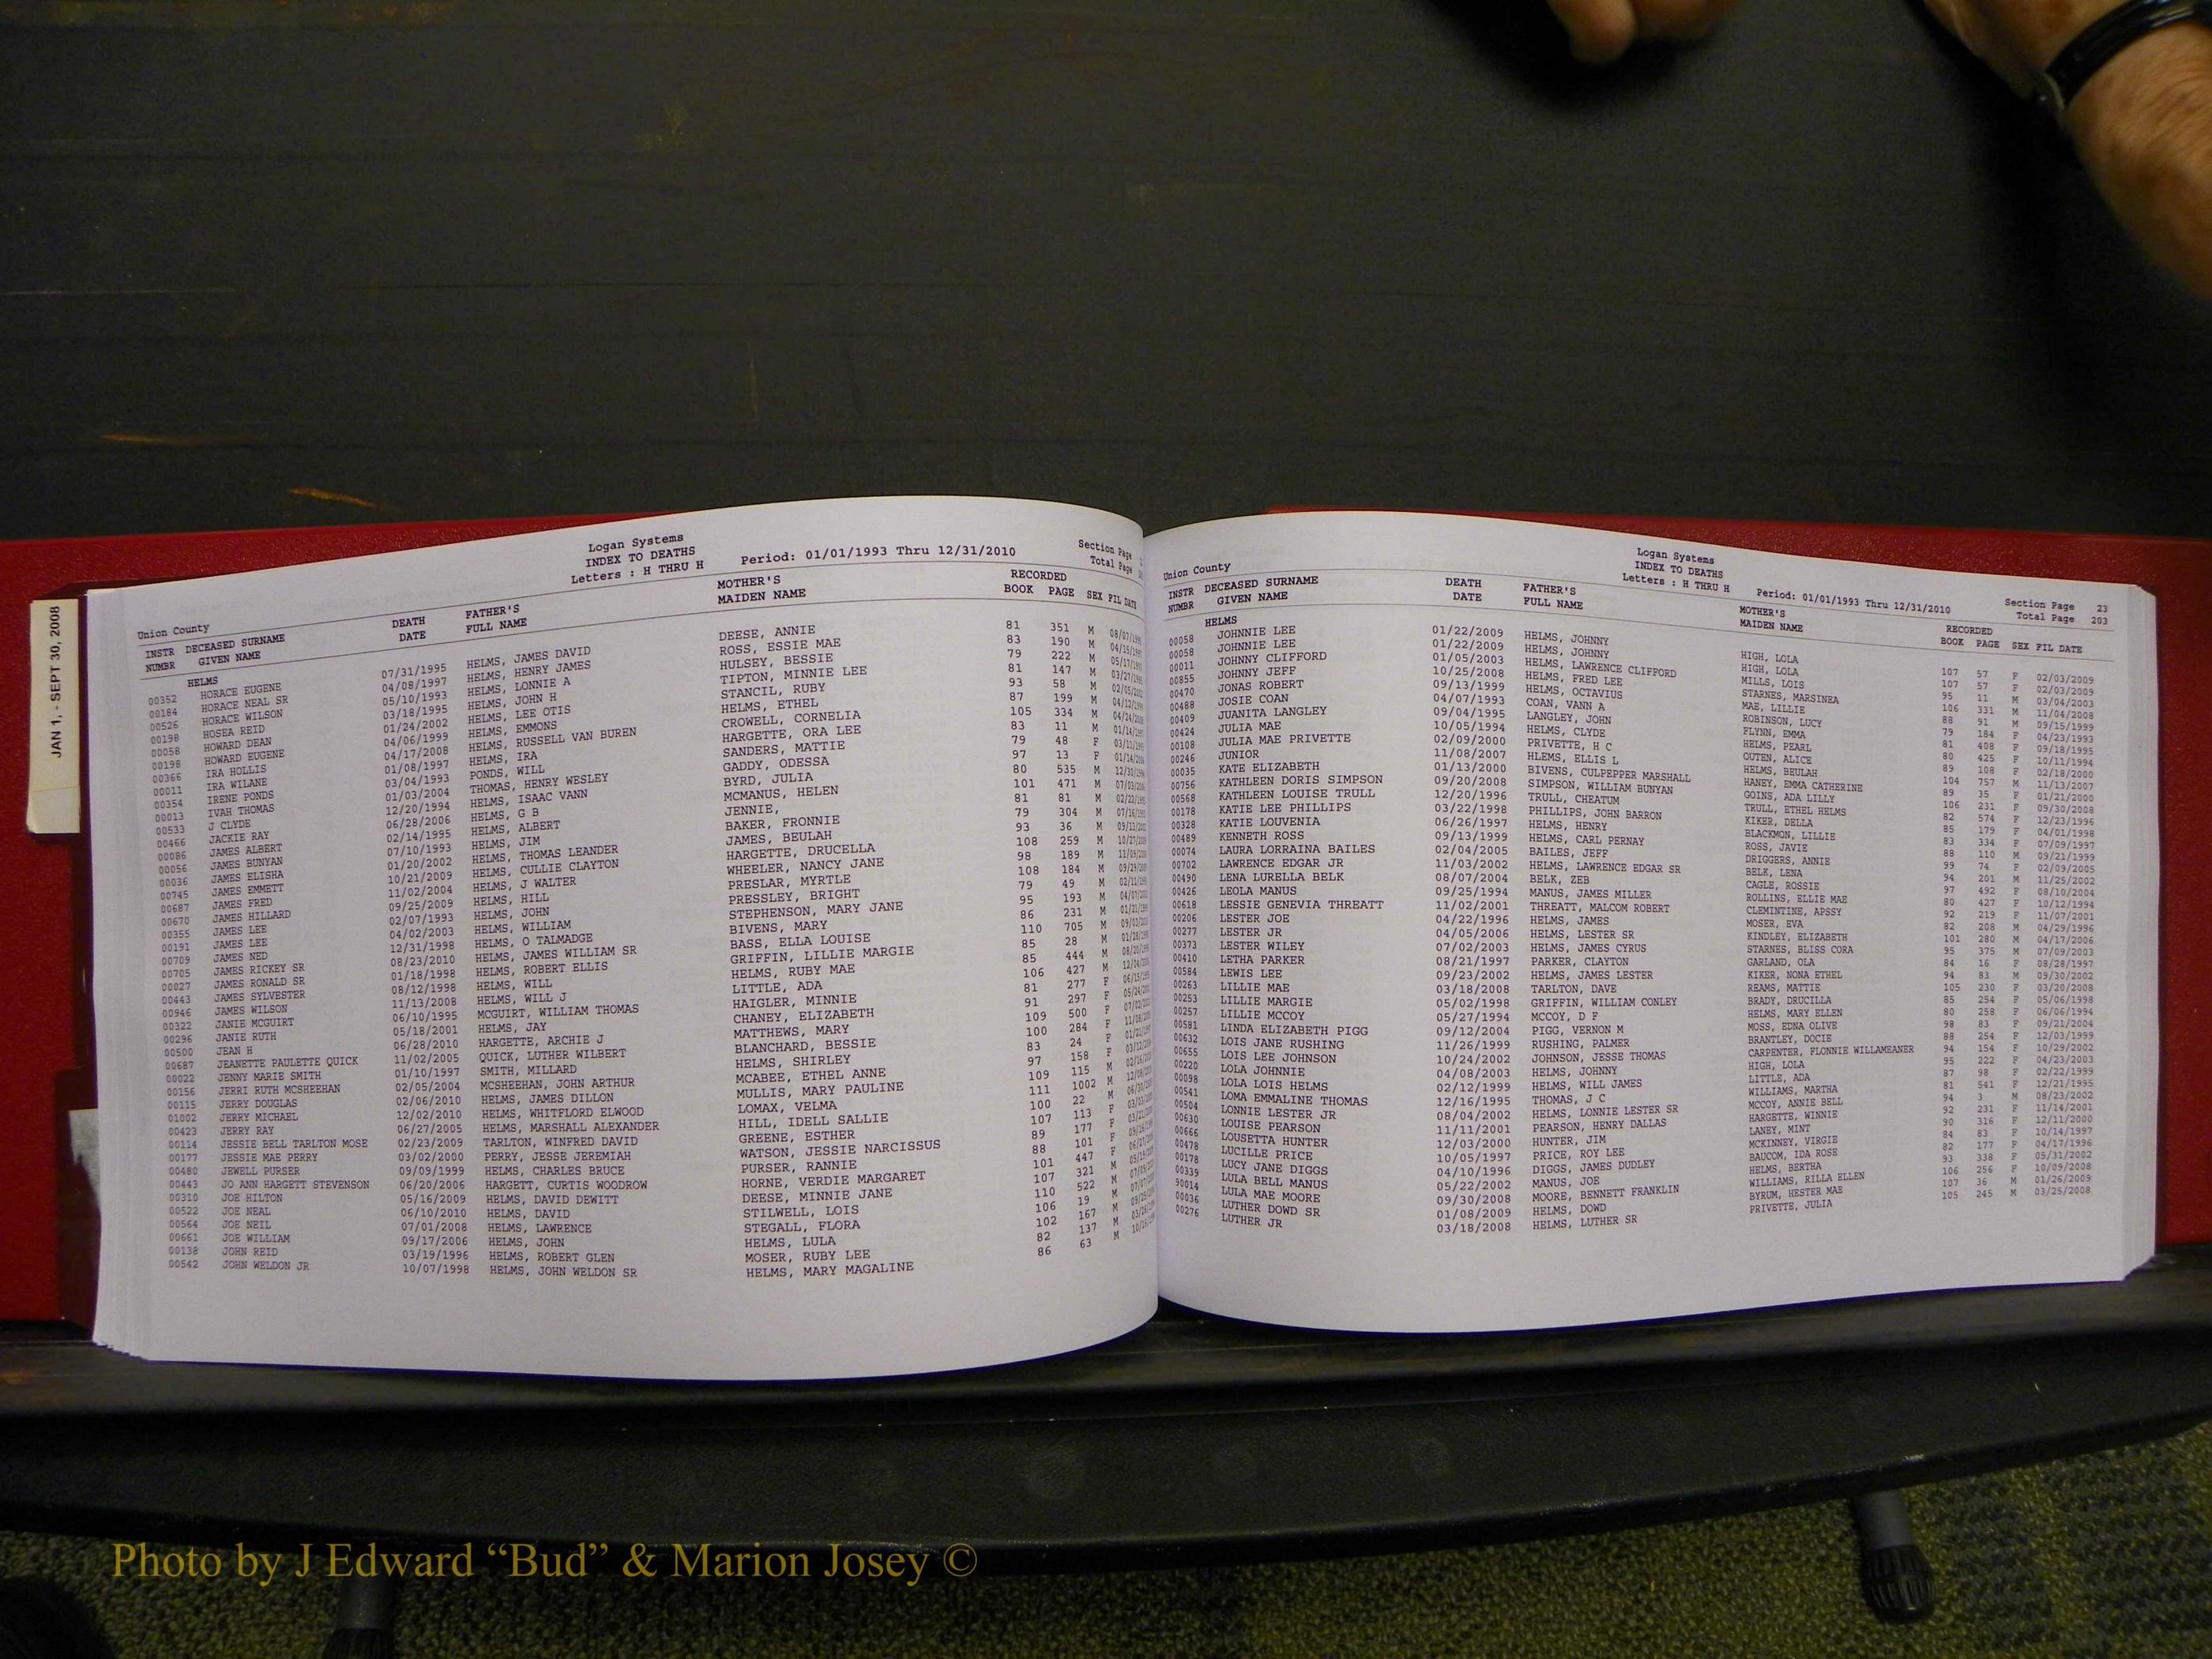 JAN 1, - SEPT 30, 2008
Union County
Logan Systems
INDEX TO DEATHS
Letters : H THRU H Period: 01/01/1993 Thru 12/31/2010
Section Page
Total Page
INSTR DECEASED SURNAME DEATH FATHER'S MOTHER'S RECORDED
NUMBR GIVEN NAME DATE FULL NAME MAIDEN NAME BOOK PAGE SEX FIL DATE
HELMS
00352 HORACE EUGENE 07/31/1995 HELMS, JAMES DAVID DEESE, ANNIE 81 351 M
00184 HORACE NEAL SR 04/08/1997 HELMS, HENRY JAMES ROSS, ESSIE MAE 83 190 M
00526 HORACE WILSON 05/10/1993 HELMS, LONNIE A HULSEY, BESSIE 79 222 M
00198 HOSEA REID 03/18/1995 HELMS, JOHN H TIPTON, MINNIE LEE 81 147 M
00058 HOWARD DEAN 01/24/2002 HELMS, LEE OTIS STANCIL, RUBY 93 58 M
00198 HOWARD EUGENE 04/06/1999 HELMS, EMMONS HELMS, ETHEL 87 199 M
00366 IRA HOLLIS 04/17/2008 HELMS, RUSSELL VAN BUREN CROWELL, CORNELIA 105 334 M
00011 IRA WILANE 01/08/1997 HELMS, IRA HARGETTE, ORA LEE 83 11 M
00354 IRENE PONDS 03/04/1993 PONDS, WILL SANDERS, MATTIE 79 48 F
00013 IVAH THOMAS 01/03/2004 THOMAS, HENRY WESLEY GADDY, ODESSA 97 13 F
00533 J CLYDE 12/20/1994 HELMS, ISAAC VANN BYRD, JULIA 80 535 M
00466 JACKIE RAY 06/28/2006 HELMS, G B MCMANUS, HELEN 101 471 M
00086 JAMES ALBERT 02/14/1995 HELMS, ALBERT JENNIE, 81 81 M
00056 JAMES BUNYAN 07/10/1993 HELMS, JIM BAKER, FRONNIE 79 304 M
00036 JAMES ELISHA 01/20/2002 HELMS, THOMAS LEANDER JAMES, BEULAH 93 36 M
00745 JAMES EMMETT 10/21/2009 HELMS, CULLIE CLAYTON HARGETTE, DRUCELLA 108 259 M
00687 JAMES FRED 11/02/2004 HELMS, J WALTER WHEELER, NANCY JANE 98 189 M
00670 JAMES HILLARD 09/25/2009 HELMS, HILL PRESLAR, MYRTLE 108 184 M
00355 JAMES LEE 02/07/1993 HELMS, JOHN PRESSLEY, BRIGHT 79 49 M
00191 JAMES LEE 04/02/2003 HELMS, WILLIAM STEPHENSON, MARY JANE 95 193 M
00709 JAMES NED 12/31/1998 HELMS, O TALMADGE BIVENS, MARY 86 231 M
00705 JAMES RICKEY SR 08/23/2010 HELMS, JAMES WILLIAM SR BASS, ELLA LOUISE 110 705 M
00027 JAMES RONALD SR 01/18/1998 HELMS, ROBERT ELLIS GRIFFIN, LILLIE MARGIE 85 28 M
00443 JAMES SYLVESTER 08/12/1998 HELMS, WILL HELMS, RUBY MAE 85 444 M
00946 JAMES WILSON 11/13/2008 HELMS, WILL J LITTLE, ADA 106 427 M
00322 JANIE MCGUIRT 06/10/1995 MCGUIRT, WILLIAM THOMAS HAIGLER, MINNIE 81 277 F
00296 JANIE RUTH 05/18/2001 HELMS, JAY CHANEY, ELIZABETH 91 297 F
00500 JEAN H 06/28/2010 HARGETTE, ARCHIE J MATTHEWS, MARY 109 500 F
00687 JEANETTE PAULETTE QUICK 11/02/2005 QUICK, LUTHER WILBERT BLANCHARD, BESSIE 100 284 F
00022 JENNY MARIE SMITH 01/10/1997 SMITH, MILLARD HELMS, SHIRLEY 83 24 F
00156 JERRI RUTH MCSHEEHAN 02/05/2004 MCSHEEHAN, JOHN ARTHUR MCABEE, ETHEL ANNE 97 158 F
00115 JERRY DOUGLAS 02/06/2010 HELMS, JAMES DILLON MULLIS, MARY PAULINE 109 115 M
01002 JERRY MICHAEL 12/02/2010 HELMS, WHITFLORD ELWOOD LOMAX, VELMA 111 1002 M
00423 JERRY RAY 06/27/2005 HELMS, MARSHALL ALEXANDER HILL, IDELL SALLIE 100 22 M
00114 JESSIE BELL TARLTON MOSE 02/23/2009 TARLTON, WINFRED DAVID GREENE, ESTHER 107 113 F
00177 JESSIE MAE PERRY 03/02/2000 PERRY, JESSE JEREMIAH WATSON, JESSIE NARCISSUS 89 177 F
00480 JEWELL PURSER 09/09/1999 HELMS, CHARLES BRUCE PURSER, RANNIE 88 101 F
00443 JO ANN HARGETT STEVENSON 06/20/2006 HARGETT, CURTIS WOODROW HORNE, VERDIE MARGARET 101 447 F
00310 JOE HILTON 05/16/2009 HELMS, DAVID DEWITT DEESE, MINNIE JANE 107 321 M
00522 JOE NEAL 06/10/2010 HELMS, DAVID STILWELL, LOIS 110 522 M
00564 JOE NEIL 07/01/2008 HELMS, LAWRENCE STEGALL, FLORA 106 19 M
00661 JOE WILLIAM 09/17/2006 HELMS, JOHN HELMS, LULA 102 167 M
00138 JOHN REID 03/19/1996 HELMS, ROBERT GLEN MOSER, RUBY LEE 82 137 M
00542 JOHN WELDON JR 10/07/1998 HELMS, JOHN WELDON SR HELMS, MARY MAGALINE 86 63 M
Union County
Logan Systems
INDEX TO DEATHS
Letters : H THRU H Period: 01/01/1993 Thru 12/31/2010
Section Page 23
Total Page 203
INSTR DECEASED SURNAME DEATH FATHER'S MOTHER'S RECORDED
NUMBR GIVEN NAME DATE FULL NAME MAIDEN NAME BOOK PAGE SEX FIL DATE
HELMS
00058 JOHNNIE LEE 01/22/2009 HELMS, JOHNNY HIGH, LOLA 107 57 F 02/03/2009
00058 JOHNNIE LEE 01/22/2009 HELMS, JOHNNY HIGH, LOLA 107 57 F 02/03/2009
00011 JOHNNY CLIFFORD 01/05/2003 HELMS, LAWRENCE CLIFFORD MILLS, LOIS 95 11 M 03/04/2003
00855 JOHNNY JEFF 10/25/2008 HELMS, FRED LEE STARNES, MARSINEA 106 331 M 11/04/2008
00470 JONAS ROBERT 09/13/1999 HELMS, OCTAVIUS MAE, LILLIE 88 91 M 09/15/1999
00488 JOSIE COAN 04/07/1993 COAN, VANN A ROBINSON, LUCY 79 184 F 04/23/1993
00409 JUANITA LANGLEY 09/04/1995 LANGLEY, JOHN FLYNN, EMMA 81 408 F 09/18/1995
00424 JULIA MAE 10/05/1994 HELMS, CLYDE HELMS, PEARL 80 425 F 10/11/1994
00108 JULIA MAE PRIVETTE 02/09/2000 PRIVETTE, H C OUTEN, ALICE 89 108 F 02/18/2000
00246 JUNIOR 11/08/2007 HLEMS, ELLIS L HELMS, BEULAH 104 757 M 11/13/2007
00035 KATE ELIZABETH 01/13/2000 BIVENS, CULPEPPER MARSHALL HANEY, EMMA CATHERINE 89 35 F 01/21/2000
00756 KATHLEEN DORIS SIMPSON 09/20/2008 SIMPSON, WILLIAM BUNYAN GOINS, ADA LILLY 106 231 F 09/30/2008
00568 KATHLEEN LOUISE TRULL 12/20/1996 TRULL, CHEATUM TRULL, ETHEL HELMS 82 574 F 12/23/1996
00178 KATIE LEE PHILLIPS 03/22/1998 PHILLIPS, JOHN BARRON KIKER, DELLA 85 179 F 04/01/1998
00328 KATIE LOUVENIA 06/26/1997 HELMS, HENRY BLACKMON, LILLIE 83 334 F 07/09/1997
00489 KENNETH ROSS 09/13/1999 HELMS, CARL PERNAY ROSS, JAVIE 88 110 M 09/21/1999
00074 LAURA LORRAINA BAILES 02/04/2005 BAILES, JEFF DRIGGERS, ANNIE 99 74 F 02/09/2005
00702 LAWRENCE EDGAR JR 11/03/2002 HELMS, LAWRENCE EDGAR SR BELK, LENA 94 201 M 11/25/2002
00490 LENA LURELLA BELK 08/07/2004 BELK, ZEB CAGLE, ROSSIE 97 492 F 08/10/2004
00426 LEOLA MANUS 09/25/1994 MANUS, JAMES MILLER ROLLINS, ELLIE MAE 80 427 F 10/12/1994
00618 LESSIE GENEVIA THREATT 11/02/2001 THREATT, MALCOM ROBERT CLEMINTINE, APSSY 92 219 F 11/07/2001
00206 LESTER JOE 04/22/1996 HELMS, JAMES MOSER, EVA 82 208 M 04/29/1996
00277 LESTER JR 04/05/2006 HELMS, LESTER SR KINDLEY, ELIZABETH 101 280 M 04/17/2006
00373 LESTER WILEY 07/02/2003 HELMS, JAMES CYRUS STARNES, BLISS CORA 95 375 M 07/09/2003
00410 LETHA PARKER 08/21/1997 PARKER, CLAYTON GARLAND, OLA 84 16 F 08/28/1997
00584 LEWIS LEE 09/23/2002 HELMS, JAMES LESTER KIKER, NONA ETHEL 94 83 M 09/30/2002
00263 LILLIE MAE 03/18/2008 TARLTON, DAVE REAMS, MATTIE 105 230 F 03/20/2008
00253 LILLIE MARGIE 05/02/1998 GRIFFIN, WILLIAM CONLEY BRADY, DRUCILLA 85 254 F 05/06/1998
00257 LILLIE MCCOY 05/27/1994 MCCOY, D F HELMS, MARY ELLEN 80 258 F 06/06/1994
00581 LINDA ELIZABETH PIGG 09/12/2004 PIGG, VERNON M MOSS, EDNA OLIVE 98 83 F 09/21/2004
00632 LOIS JANE RUSHING 11/26/1999 RUSHING, PALMER BRANTLEY, DOCIE 88 254 F 12/03/1999
00655 LOIS LEE JOHNSON 10/24/2002 JOHNSON, JESSE THOMAS CARPENTER, FLONNIE WILLAMEANER 94 154 F 10/29/2002
00220 LOLA JOHNNIE 04/08/2003 HELMS, JOHNNY HIGH, LOLA 95 222 F 04/23/2003
00098 LOLA LOIS HELMS 02/12/1999 HELMS, WILL JAMES LITTLE, ADA 87 98 F 02/22/1999
00541 LOMA EMMALINE THOMAS 12/16/1995 THOMAS, J C WILLIAMS, MARTHA 81 541 F 12/21/1995
00504 LONNIE LESTER JR 08/04/2002 HELMS, LONNIE LESTER SR MCCOY, ANNIE BELL 94 3 M 08/23/2002
00630 LOUISE PEARSON 11/11/2001 PEARSON, HENRY DALLAS HARGETTE, WINNIE 92 231 F 11/14/2001
00666 LOUSETTA HUNTER 12/03/2000 HUNTER, JIM LANEY, MINT 90 316 F 12/11/2000
00478 LUCILLE PRICE 10/05/1997 PRICE, ROY LEE MCKINNEY, VIRGIE 84 83 F 10/14/1997
00178 LUCY JANE DIGGS 04/10/1996 DIGGS, JAMES DUDLEY BAUCOM, IDA ROSE 82 177 F 04/17/1996
00339 LULA BELL MANUS 05/22/2002 MANUS, JOE HELMS, BERTHA 93 338 F 05/31/2002
90014 LULA MAE MOORE 09/30/2008 MOORE, BENNETT FRANKLIN WILLIAMS, RILLA ELLEN 106 256 F 10/09/2008
00036 LUTHER DOWD SR 01/08/2009 HELMS, DOWD BYRUM, HESTER MAE 107 36 M 01/26/2009
00276 LUTHER JR 03/18/2008 HELMS, LUTHER SR PRIVETTE, JULIA 105 245 M 03/25/2008
Photo by J Edward “Bud” & Marion Josey ©